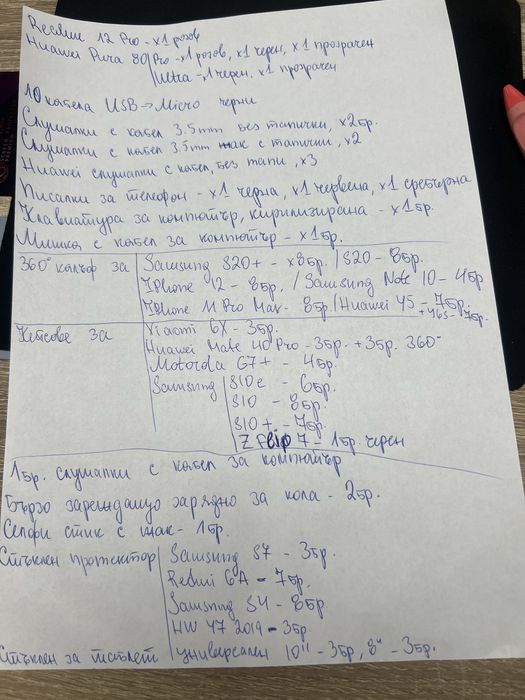 Realme 12 Pro - x1 розов
Huawei Pura 80/Pro - x1 розов, x1 черен, x1 прозрачен
/Ultra - x1 черен, x1 прозрачен
10 кабела USB → Micro черни
Слушалки с кабел 3.5mm без тапички, x2бр.
Слушалки с кабел 3.5mm жак с тапички, x2
Huawei слушалки с кабел, без тапи, x3
Писалки за телефон - x1 черна, x1 червена, x1 сребърна
Клавиатура за компютър, кирилизирана - x1бр.
Мишка с кабел за компютър - x1бр.
360° калъф за Samsung S20+ - x8бр. / S20 - 8бр.
IPhone 12 - 8бр. / Samsung Note 10 - 4бр
IPhone 11 Pro Max - 8бр / Huawei Y5 - 7бр.
+ Y6S - 7бр.
Кейсове за Xiaomi 6X - 3бр.
Huawei Mate 40 Pro - 3бр. + 3бр. 360°
Motorola G7+ - 4бр.
Samsung S10e - 6бр.
S10 - 8бр.
S10+ - 7бр.
Z Flip 7 - 1бр. черен
1бр. слушалки с кабел за компютър
Бързо зареждащо зарядно за кола - 2бр.
Селфи стик с жак - 1бр.
Стъклен протектор Samsung S7 - 3бр.
Redmi 6A - 7бр.
Samsung S4 - 8бр.
HW Y7 2019 - 3бр.
Стъклен за таблет универсален 10" - 3бр, 8" - 3бр.